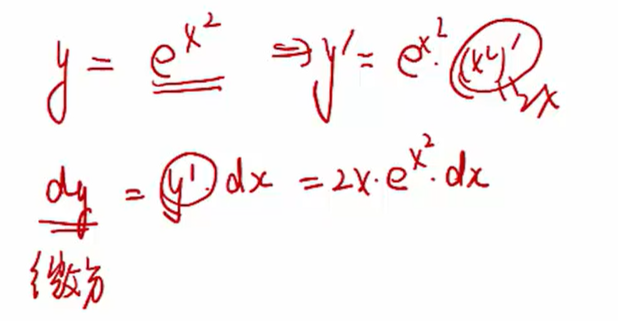 y = e^{x^2} ⇒ y' = e^{x^2} · (x^2)' 2x
dy = y' · dx = 2x · e^{x^2} · dx
微分